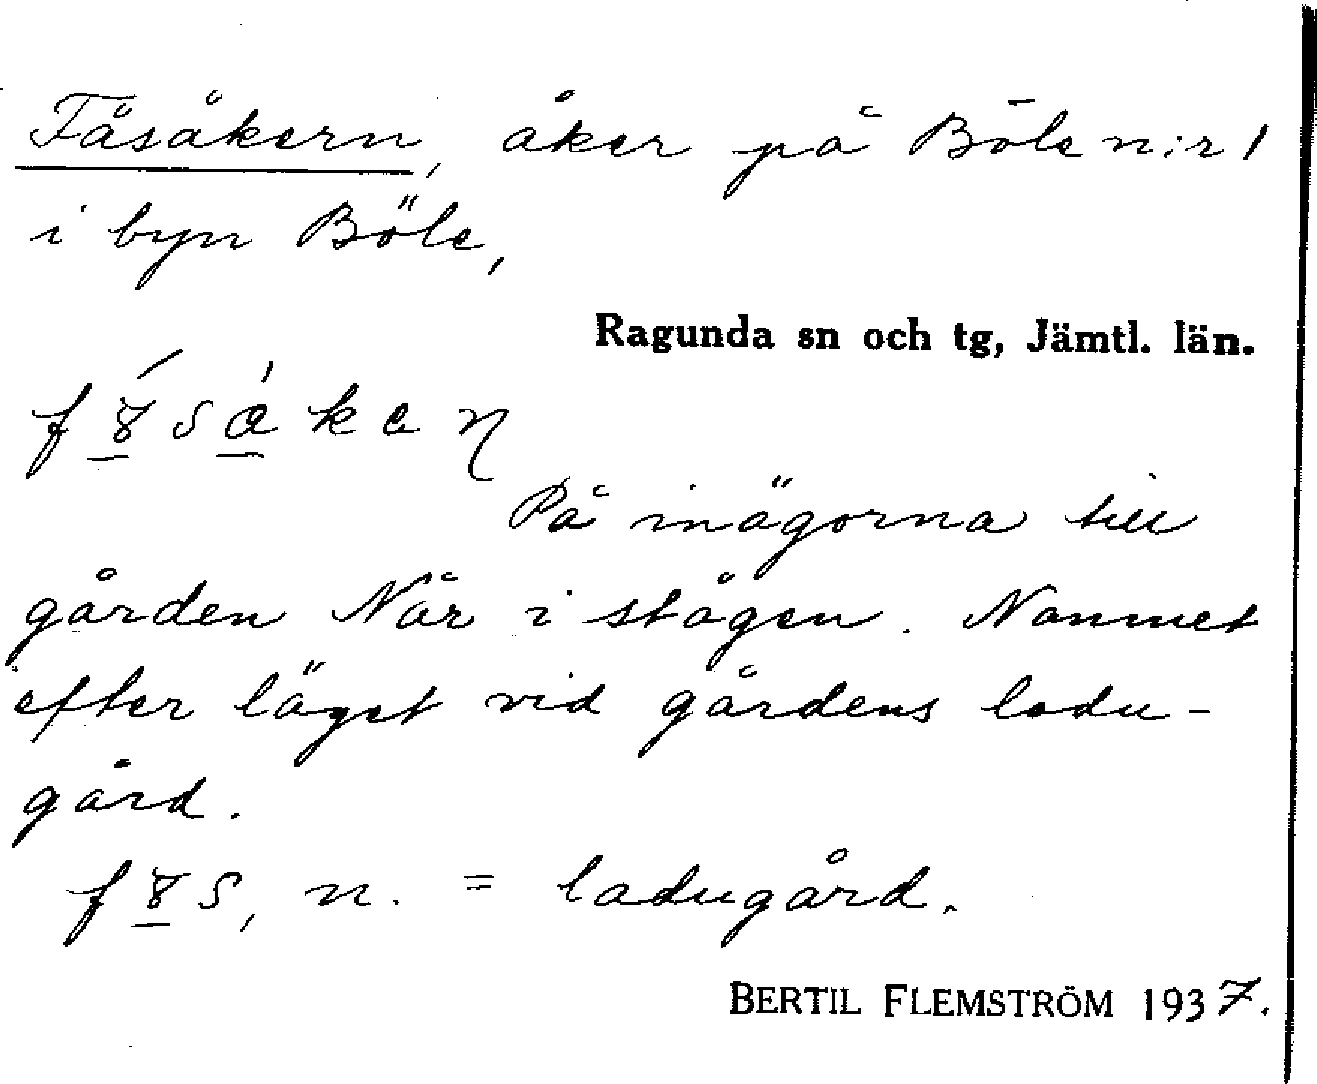 Fåsåkern, åker på Böle n:r 1
i byn Böle,
Ragunda sn och tg, Jämtl. län.
På inägorna till
gården När i stågen. Namnet
efter läget vid gårdens ladu-
gård.
n. = ladugård.
BERTIL FLEMSTRÖM 1937.